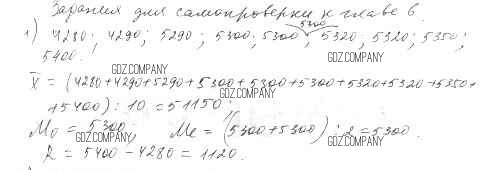 Задания для самопроверки к главе 6.
1) 4280; 4290; 5290; 5300; 5300; 5300; 5320; 5320; 5350;
5400.
GDZ.COMPANY
GDZ.COMPANY
X̄ = (4280+4290+5290+5300+5300+5300+5320+5320+5350+
GDZ.COMPANY
+5400) : 10 = 51150;
Mo = 5300, Me = (5300+5300) : 2 = 5300.
GDZ.COMPANY GDZ.COMPANY GDZ.COMPANY
R = 5400 – 4280 = 1120.